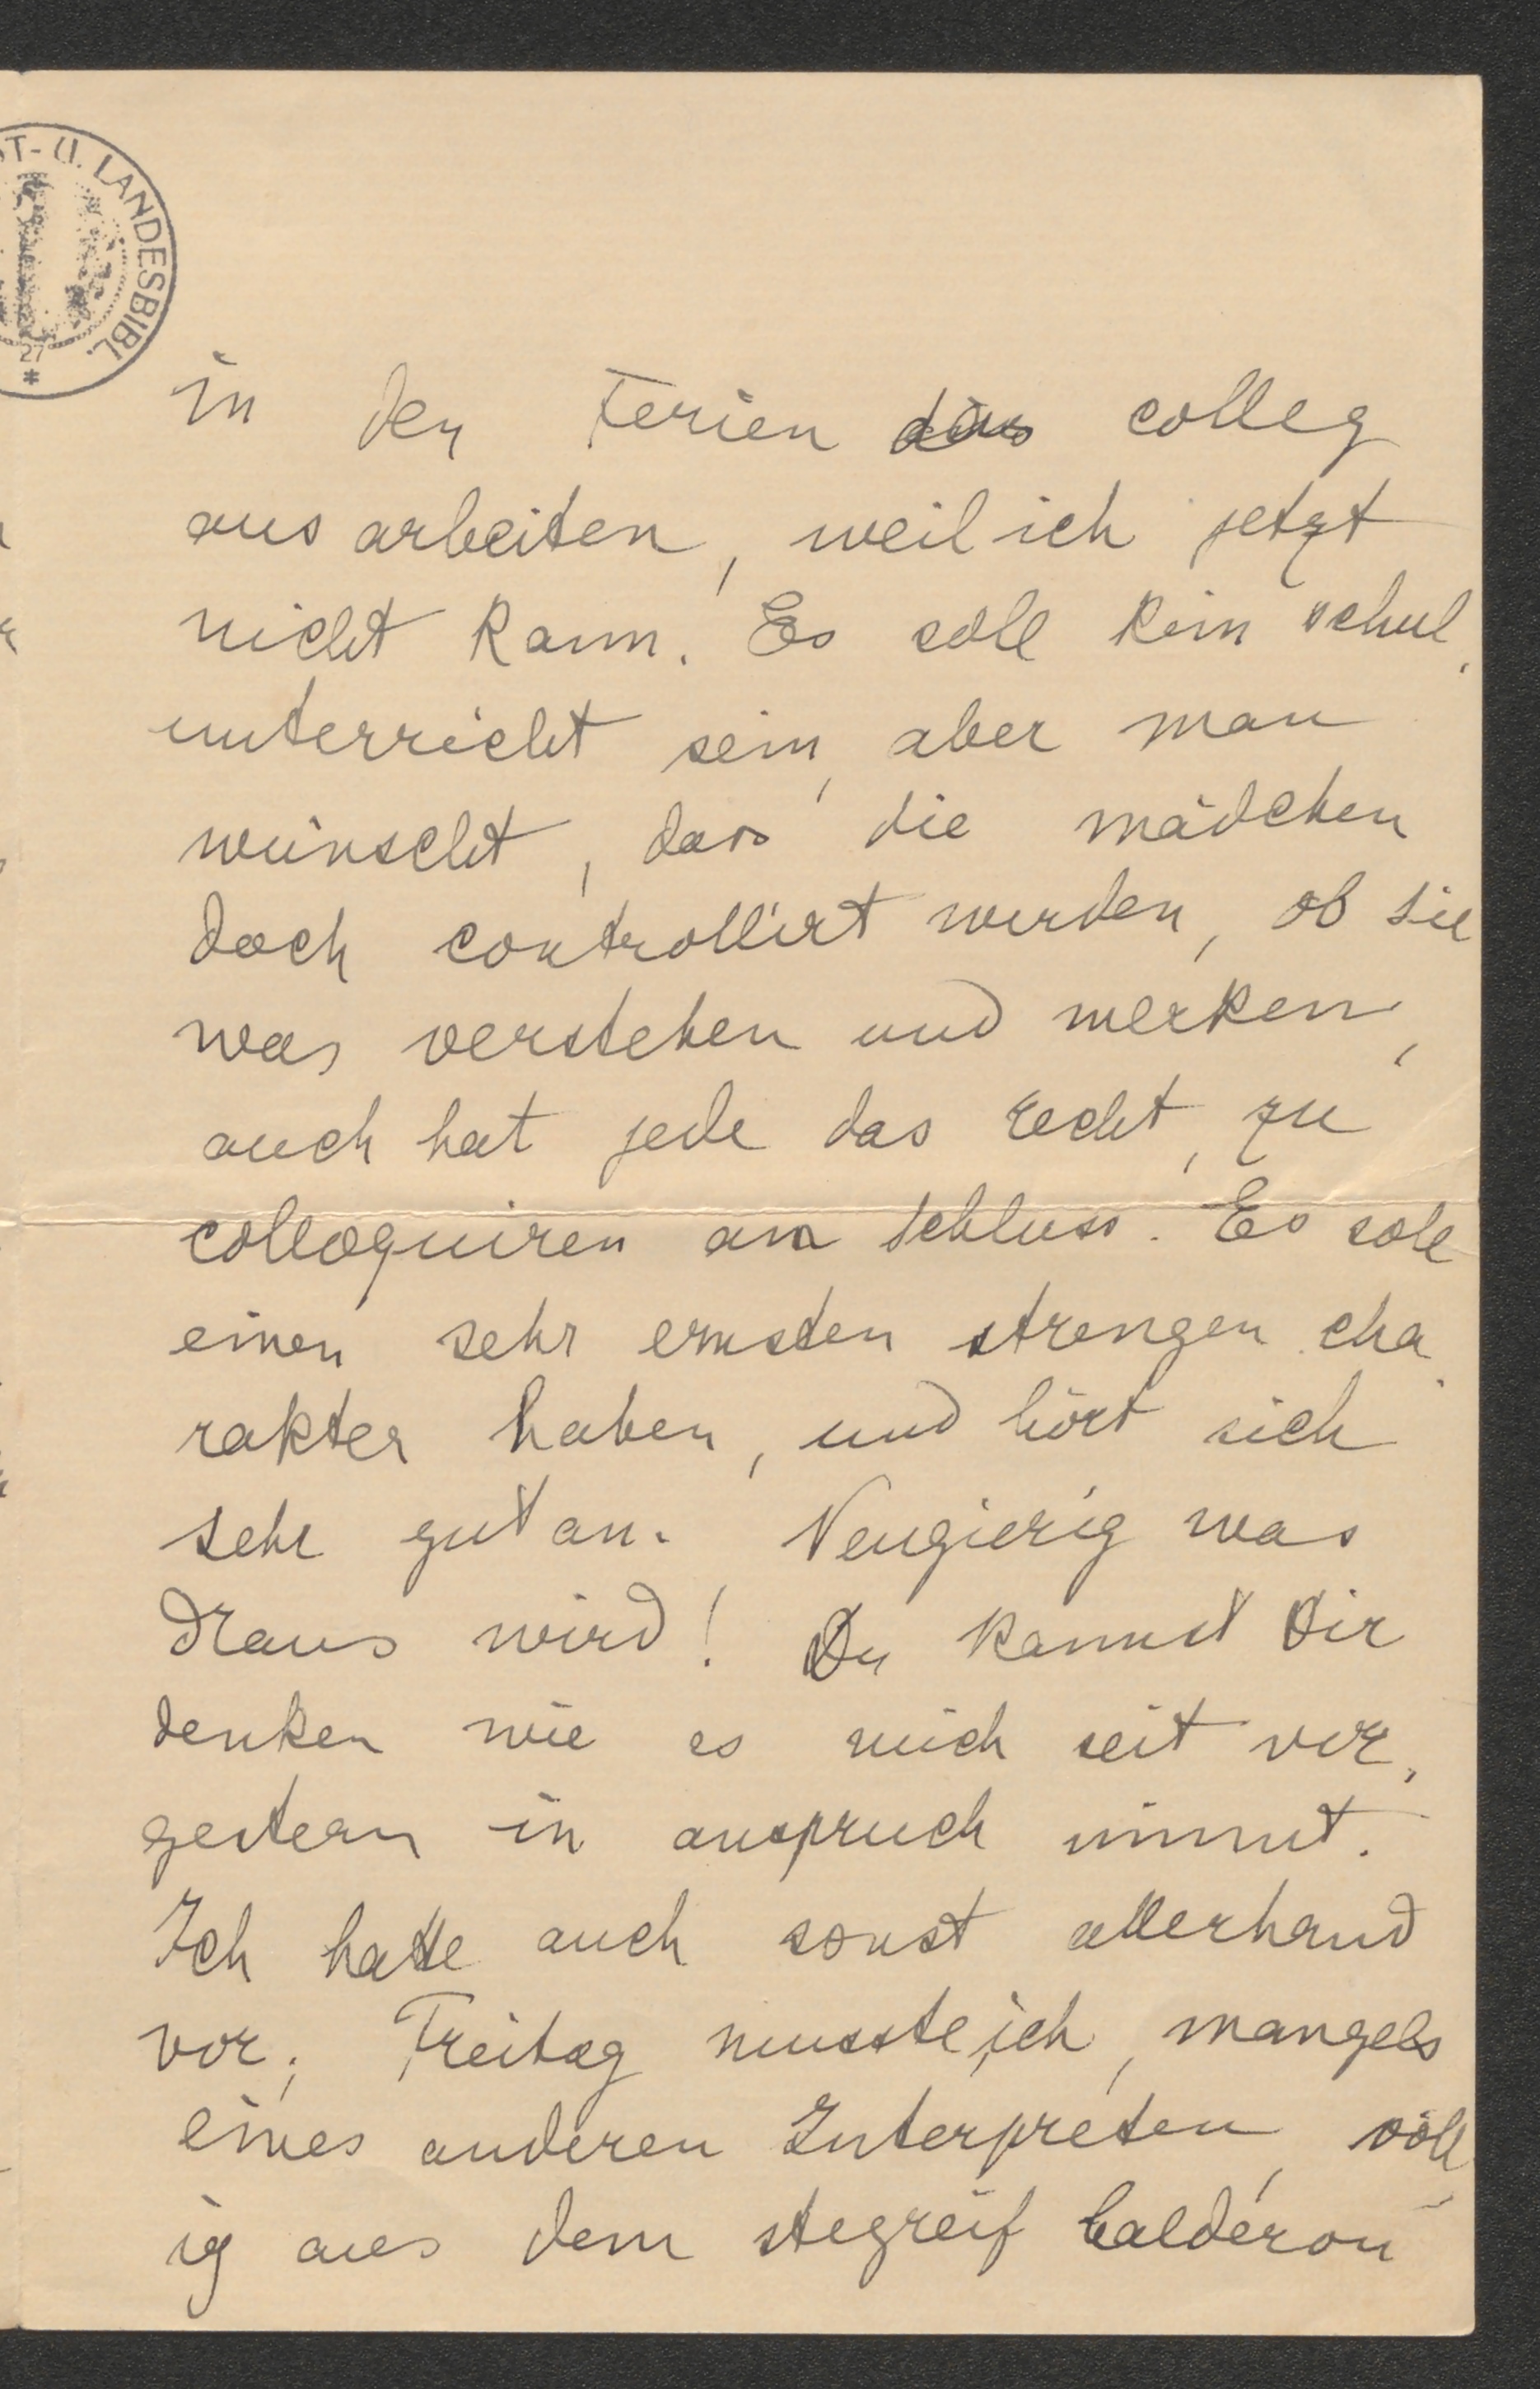 ST- U. LANDESBIBL.
27
*
in den Ferien das colleg
ausarbeiten, weil ich jetzt
nicht kann. Es soll kein schul-
unterricht sein, aber man
wünscht, dass die mädchen
doch controllirt werden, ob sie
was verstehen und merken,
auch hat jede das recht, zu
colloquiren am schluss. Es soll
einen sehr ernsten strengen cha-
rakter haben, und hört sich
sehr gut an. Neugierig was
draus wird! Du kannst Dir
denken wie es mich seit vor-
gestern in anspruch nimmt.
Ich hatte auch sonst allerhand
vor; Freitag musste ich, mangels
eines anderen Interpreten, völl-
ig aus dem stegreif Calderon